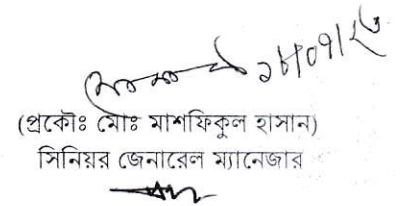 ১৮/০৭/২৬
(প্রকৌঃ মোঃ মাশফিকুল হাসান)
সিনিয়র জেনারেল ম্যানেজার